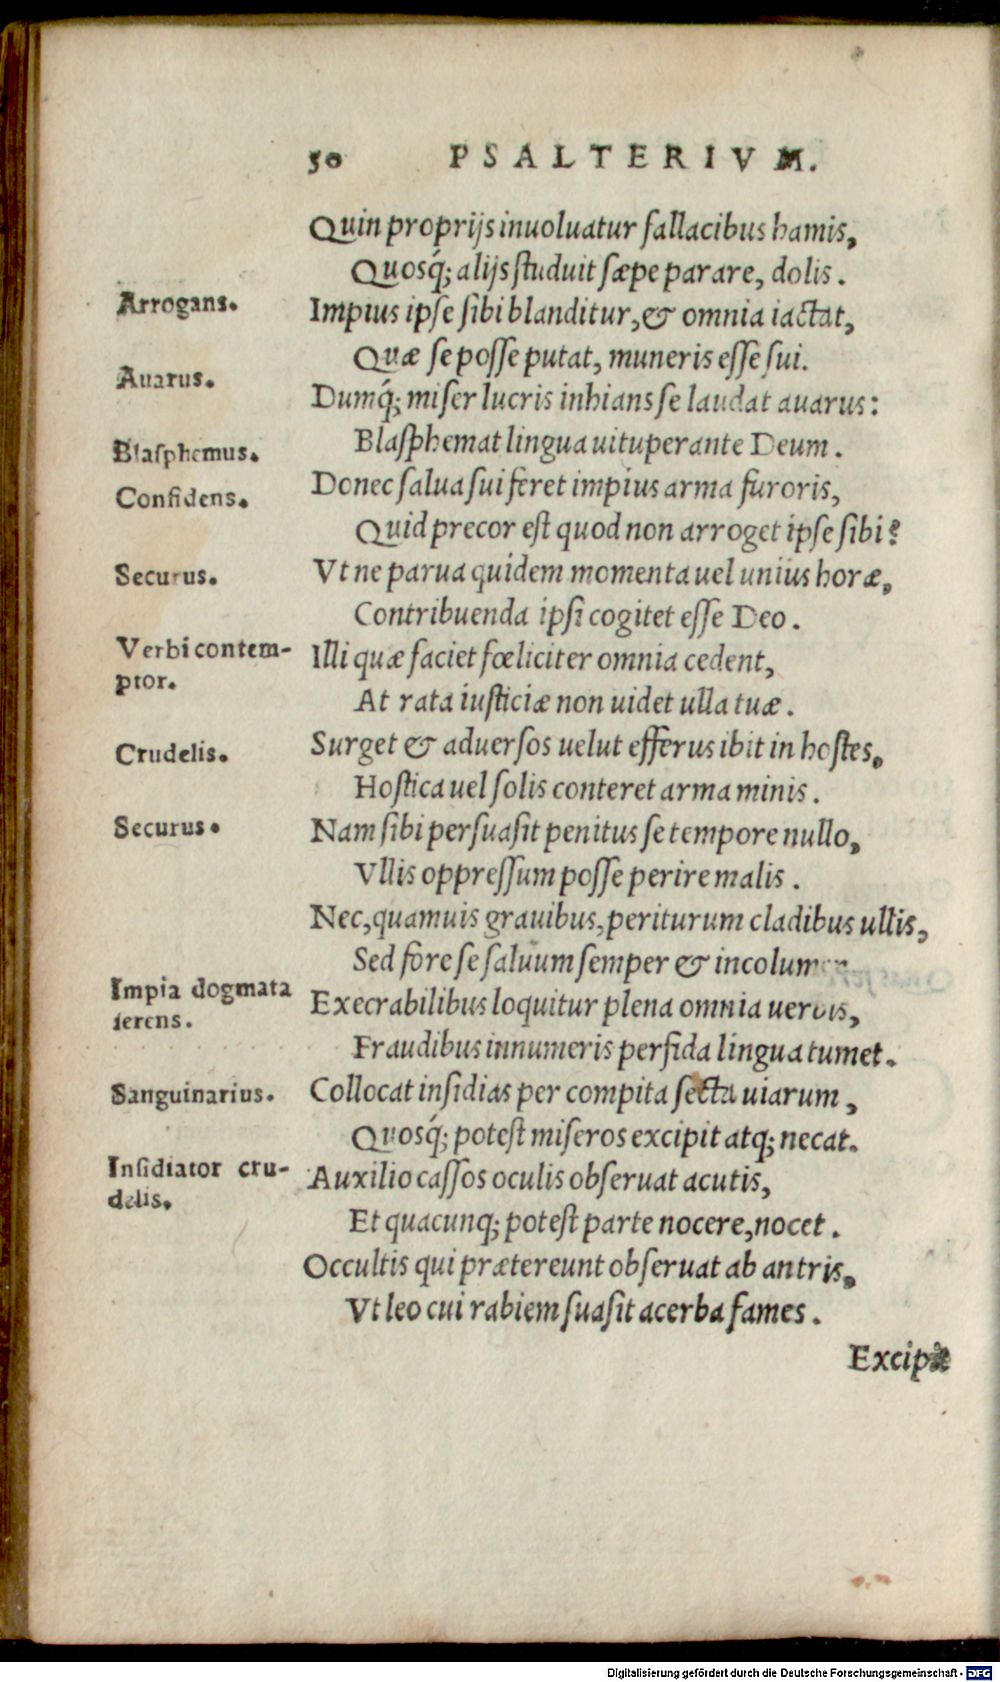 50 PSALTERIVM.
Quin proprijs inuoluatur fallacibus hamis,
Quosq́; alijs studuit sæpe parare, dolis.
Arrogans.
Impius ipse sibi blanditur, & omnia iactat,
Quæ se posse putat, muneris esse sui.
Auarus.
Dumq́; miser lucris inhians se laudat auarus:
Blasphemus.
Blasphemat lingua uituperante Deum.
Confidens.
Donec salua sui feret impius arma furoris,
Quid precor est quod non arroget ipse sibi?
Securus.
Vt ne parua quidem momenta uel unius horæ,
Contribuenda ipsi cogitet esse Deo.
Verbi contem-
ptor.
Illi quæ faciet fœliciter omnia cedent,
At rata iusticiæ non uidet ulla tuæ.
Crudelis.
Surget & aduersos uelut efferus ibit in hostes,
Hostica uel solis conteret arma minis.
Securus.
Nam sibi persuasit penitus se tempore nullo,
Vllis oppressum posse perire malis.
Nec, quamuis grauibus, periturum cladibus ullis,
Sed fore se saluum semper &
Impia dogmata
serens.
Execrabilibus loquitur plena omnia uerbis,
Fraudibus innumeris perfida lingua tumet.
Sanguinarius.
Collocat insidias per compita secta uiarum,
Quosq́; potest miseros excipit atq; necat.
Insidiator cru-
delis.
Auxilio cassos oculis obseruat acutis,
Et quacunq; potest parte nocere, nocet.
Occultis qui prætereunt obseruat ab antris,
Vt leo cui rabiem suasit acerba fames.
Digitalisierung gefördert durch die Deutsche Forschungsgemeinschaft - DFG